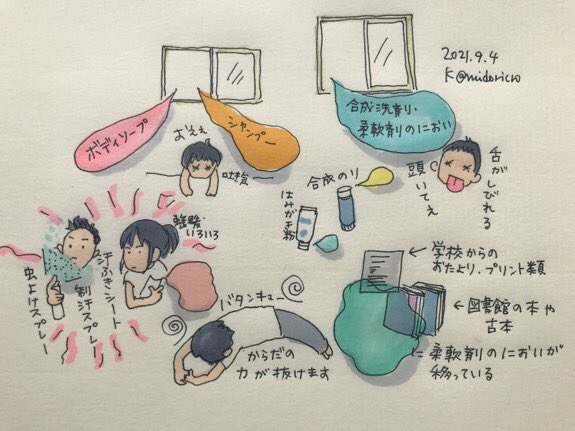 2021.9.4
K@midoricro
ボディソープ
シャンプー
おええ
吐気
合成洗剤・
柔軟剤のにおい
舌がしびれる
頭いてえ
合成のり
はみがき粉
強烈
いろいろ
汗ふきシート
制汗スプレー
虫よけスプレー
バタンキュー
からだの
力が抜けます
学校からの
おたより、プリント類
図書館の本や
古本
に柔軟剤のにおいが
移っている